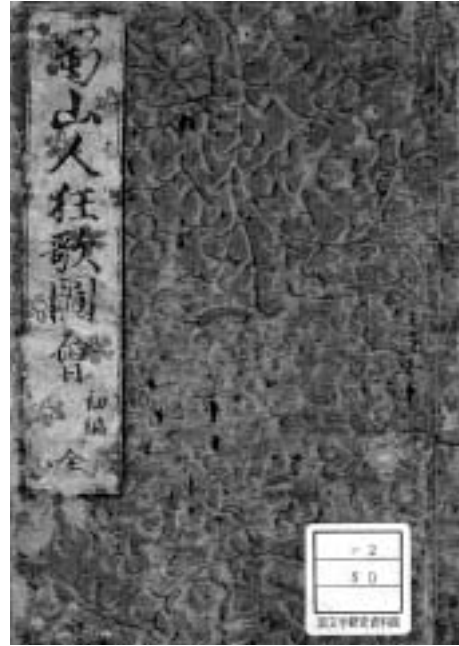 蜀山人狂歌圖會
初編
全
ナ2
50
国文学研究資料館